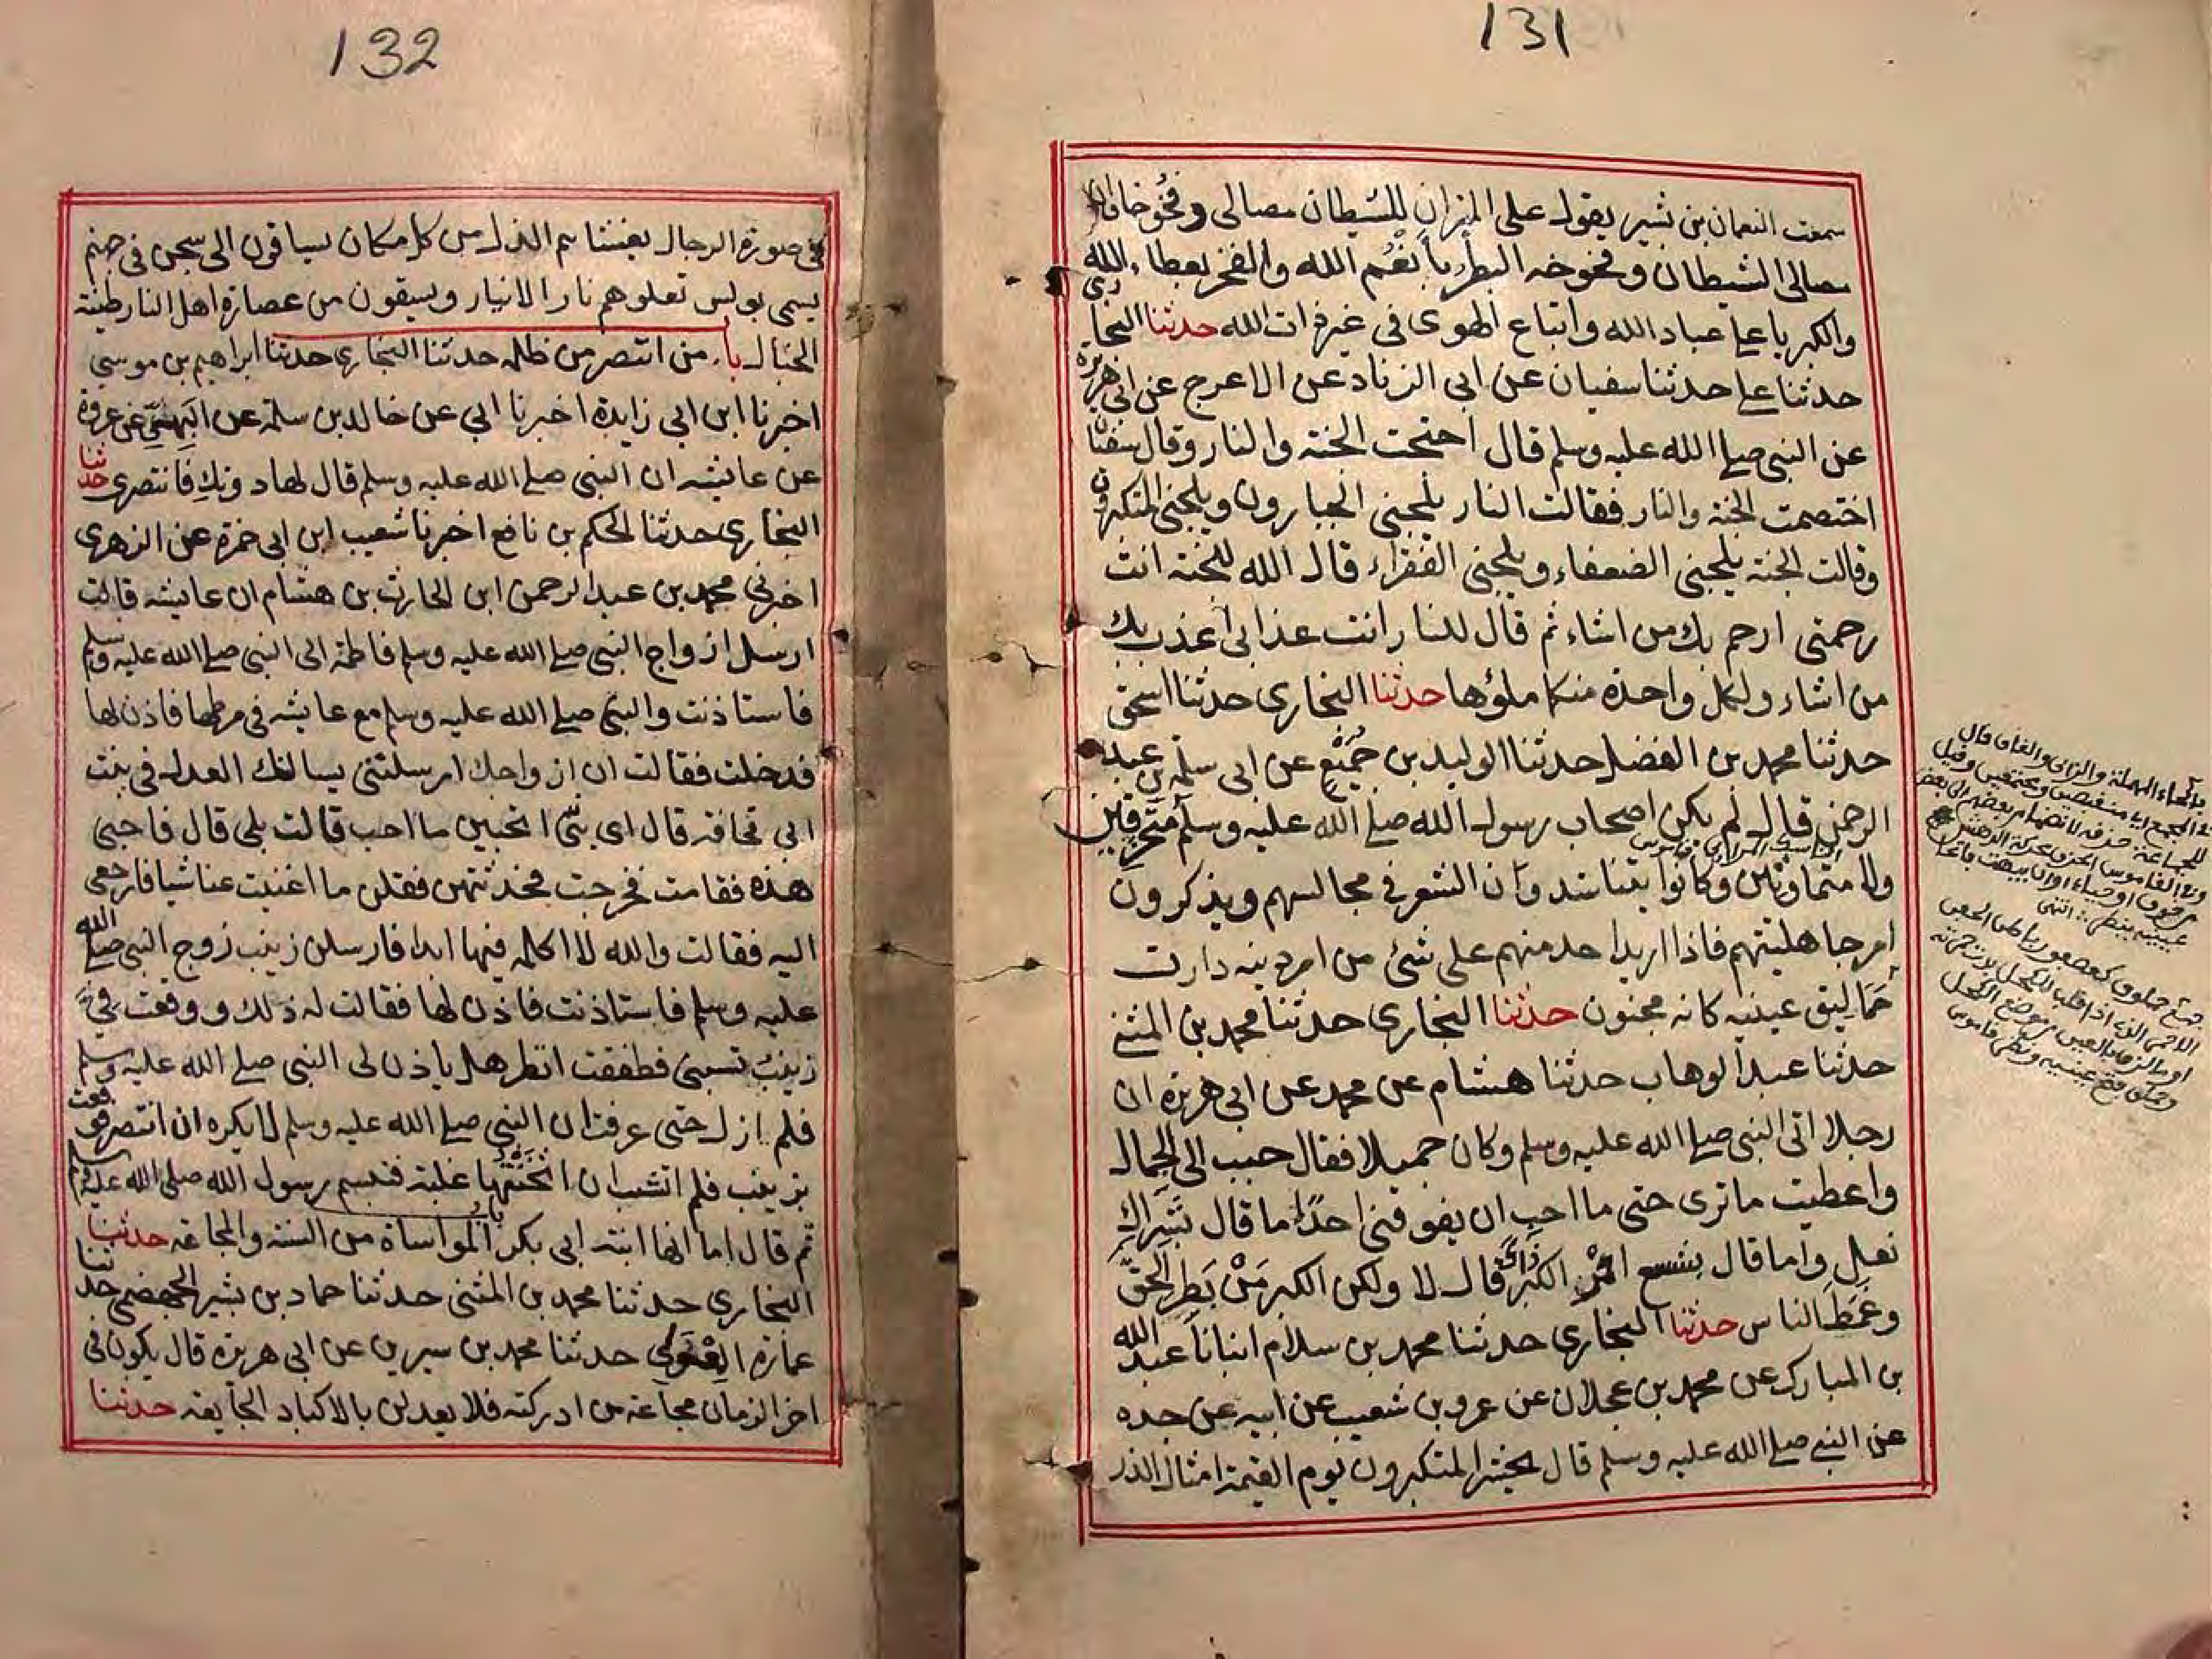 131
سمعت النعمان بن بشير يقول على المنبر ان للشيطان مصالى وفخوخا وان
مصالى الشيطان وفخوخه البطر بأنعُم الله والفخر بعطاء الله
والكبريا على عباد الله واتباع الهوى فى غير ذات الله حدثنا البخارى
حدثنا على حدثنا سفيان عن ابى الزناد عن الاعرج عن ابى هريرة
عن النبى صلى الله عليه وسلم قال احتجت الجنة والنار وقال سفين
اختصمت الجنة والنار فقالت النار يلجنى الجبارون ويلجنى المتكبرون
وقالت الجنة يلجنى الضعفاء ويلجنى الفقراء قال الله للجنة انت
رحمتى ارحم بك من اشاء ثم قال للنار انت عذابى اعذب بك
من اشاء ولكل واحدة منكما ملؤها حدثنا البخارى حدثنا اسحق
حدثنا محمد بن الفضل حدثنا الوليد بن جُمَيْع عن ابى سلمة بن عبد
الرحمن قال لم يكن اصحاب رسول الله صلى الله عليه وسلم متحزقين
ولا متماوتين وكانوا يتناشدون الشعر فى مجالسهم ويذكرون
امر جاهليتهم فاذا اريد احد منهم على شئ من امر دينه دارت
حَمَاليق عينيه كانه مجنون حدثنا البخارى حدثنا محمد بن المثنى
حدثنا عبد الوهاب حدثنا هشام عن محمد عن ابى هريرة ان
رجلا اتى النبى صلى الله عليه وسلم وكان جميلا فقال حبب الى الجمال
واعطيت ما ترى حتى ما احب ان يفوقنى احدٌ اما قال بشراك
نعل واما قال بشسع الكبر ذاك قال لا ولكن الكبر مَنْ بَطِر الحقّ
وغمَطَ الناس حدثنا البخارى حدثنا محمد بن سلام انبانا عبد الله
بن المبارك عن محمد بن عجلان عن عمرو بن شعيب عن ابيه عن جده
عن النبى صلى الله عليه وسلم قال يحشر المتكبرون يوم القيمة امثال الذر
بالحاء المهملة والزاى والقاف قال
132
فى صورة الرجال يغشاهم الذل من كل مكان يساقون الى سجن فى جهنم
يسمى بولس تعلوهم نار الانيار ويسقون من عصارة اهل النار طينة
الخبال باب من انتصر من ظلمه حدثنا البخارى حدثنا ابراهيم بن موسى
اخبرنا ابن ابى زايدة اخبرنا ابى عن خالد بن سلمة عن البهى عن عروة
عن عايشه ان النبى صلى الله عليه وسلم قال لها دونكِ فانتصرى حدثنا
البخارى حدثنا الحكم بن نافع اخبرنا شعيب ابن ابى حمزة عن الزهرى
اخبرنى محمد بن عبد الرحمن ابن الحارث بن هشام ان عايشه قالت
ارسل ازواج النبى صلى الله عليه وسلم فاطمة الى النبى صلى الله عليه وسلم
فاستاذنت والنبى صلى الله عليه وسلم مع عايشه فى مرطها فاذن لها
فدخلت فقالت ان ازواجك ارسلتنى يسالنك العدل فى بنت
ابى قحافه قال اى بنيّ اتحبين ما احب قالت بلى قال فاحبى
هذه فقامت فخرجت فحدثتهن فقلن ما اغنيت عنا شيا فارجعى
اليه فقالت والله لا اكلمه فيها ابدا فارسلن زينب زوج النبى صلى الله
عليه وسلم فاستاذنت فاذن لها فقالت له ذلك ووقعت فىّ
زينب تسبنى فطفقت انظر هل ياذن لى النبى صلى الله عليه وسلم
فلم ازل حتى عرفت ان النبى صلى الله عليه وسلم لا يكره ان انتصر فوقعت
بزينب فلم انشب ان اثخنتها غلبة فتبسم رسول الله صلى الله عليه وسلم
ثم قال اما انها ابنة ابى بكر باب المواساة من السنة والمجاعه حدثنا
البخارى حدثنا محمد بن المثنى حدثنا حماد بن بشير الجهضمى حدثنا
عمارة المِعْوَلى حدثنا محمد بن سيرين عن ابى هريرة قال يكون فى
اخر الزمان مجاعة من ادركته فلا يعدلن بالاكباد الجايعه حدثنا